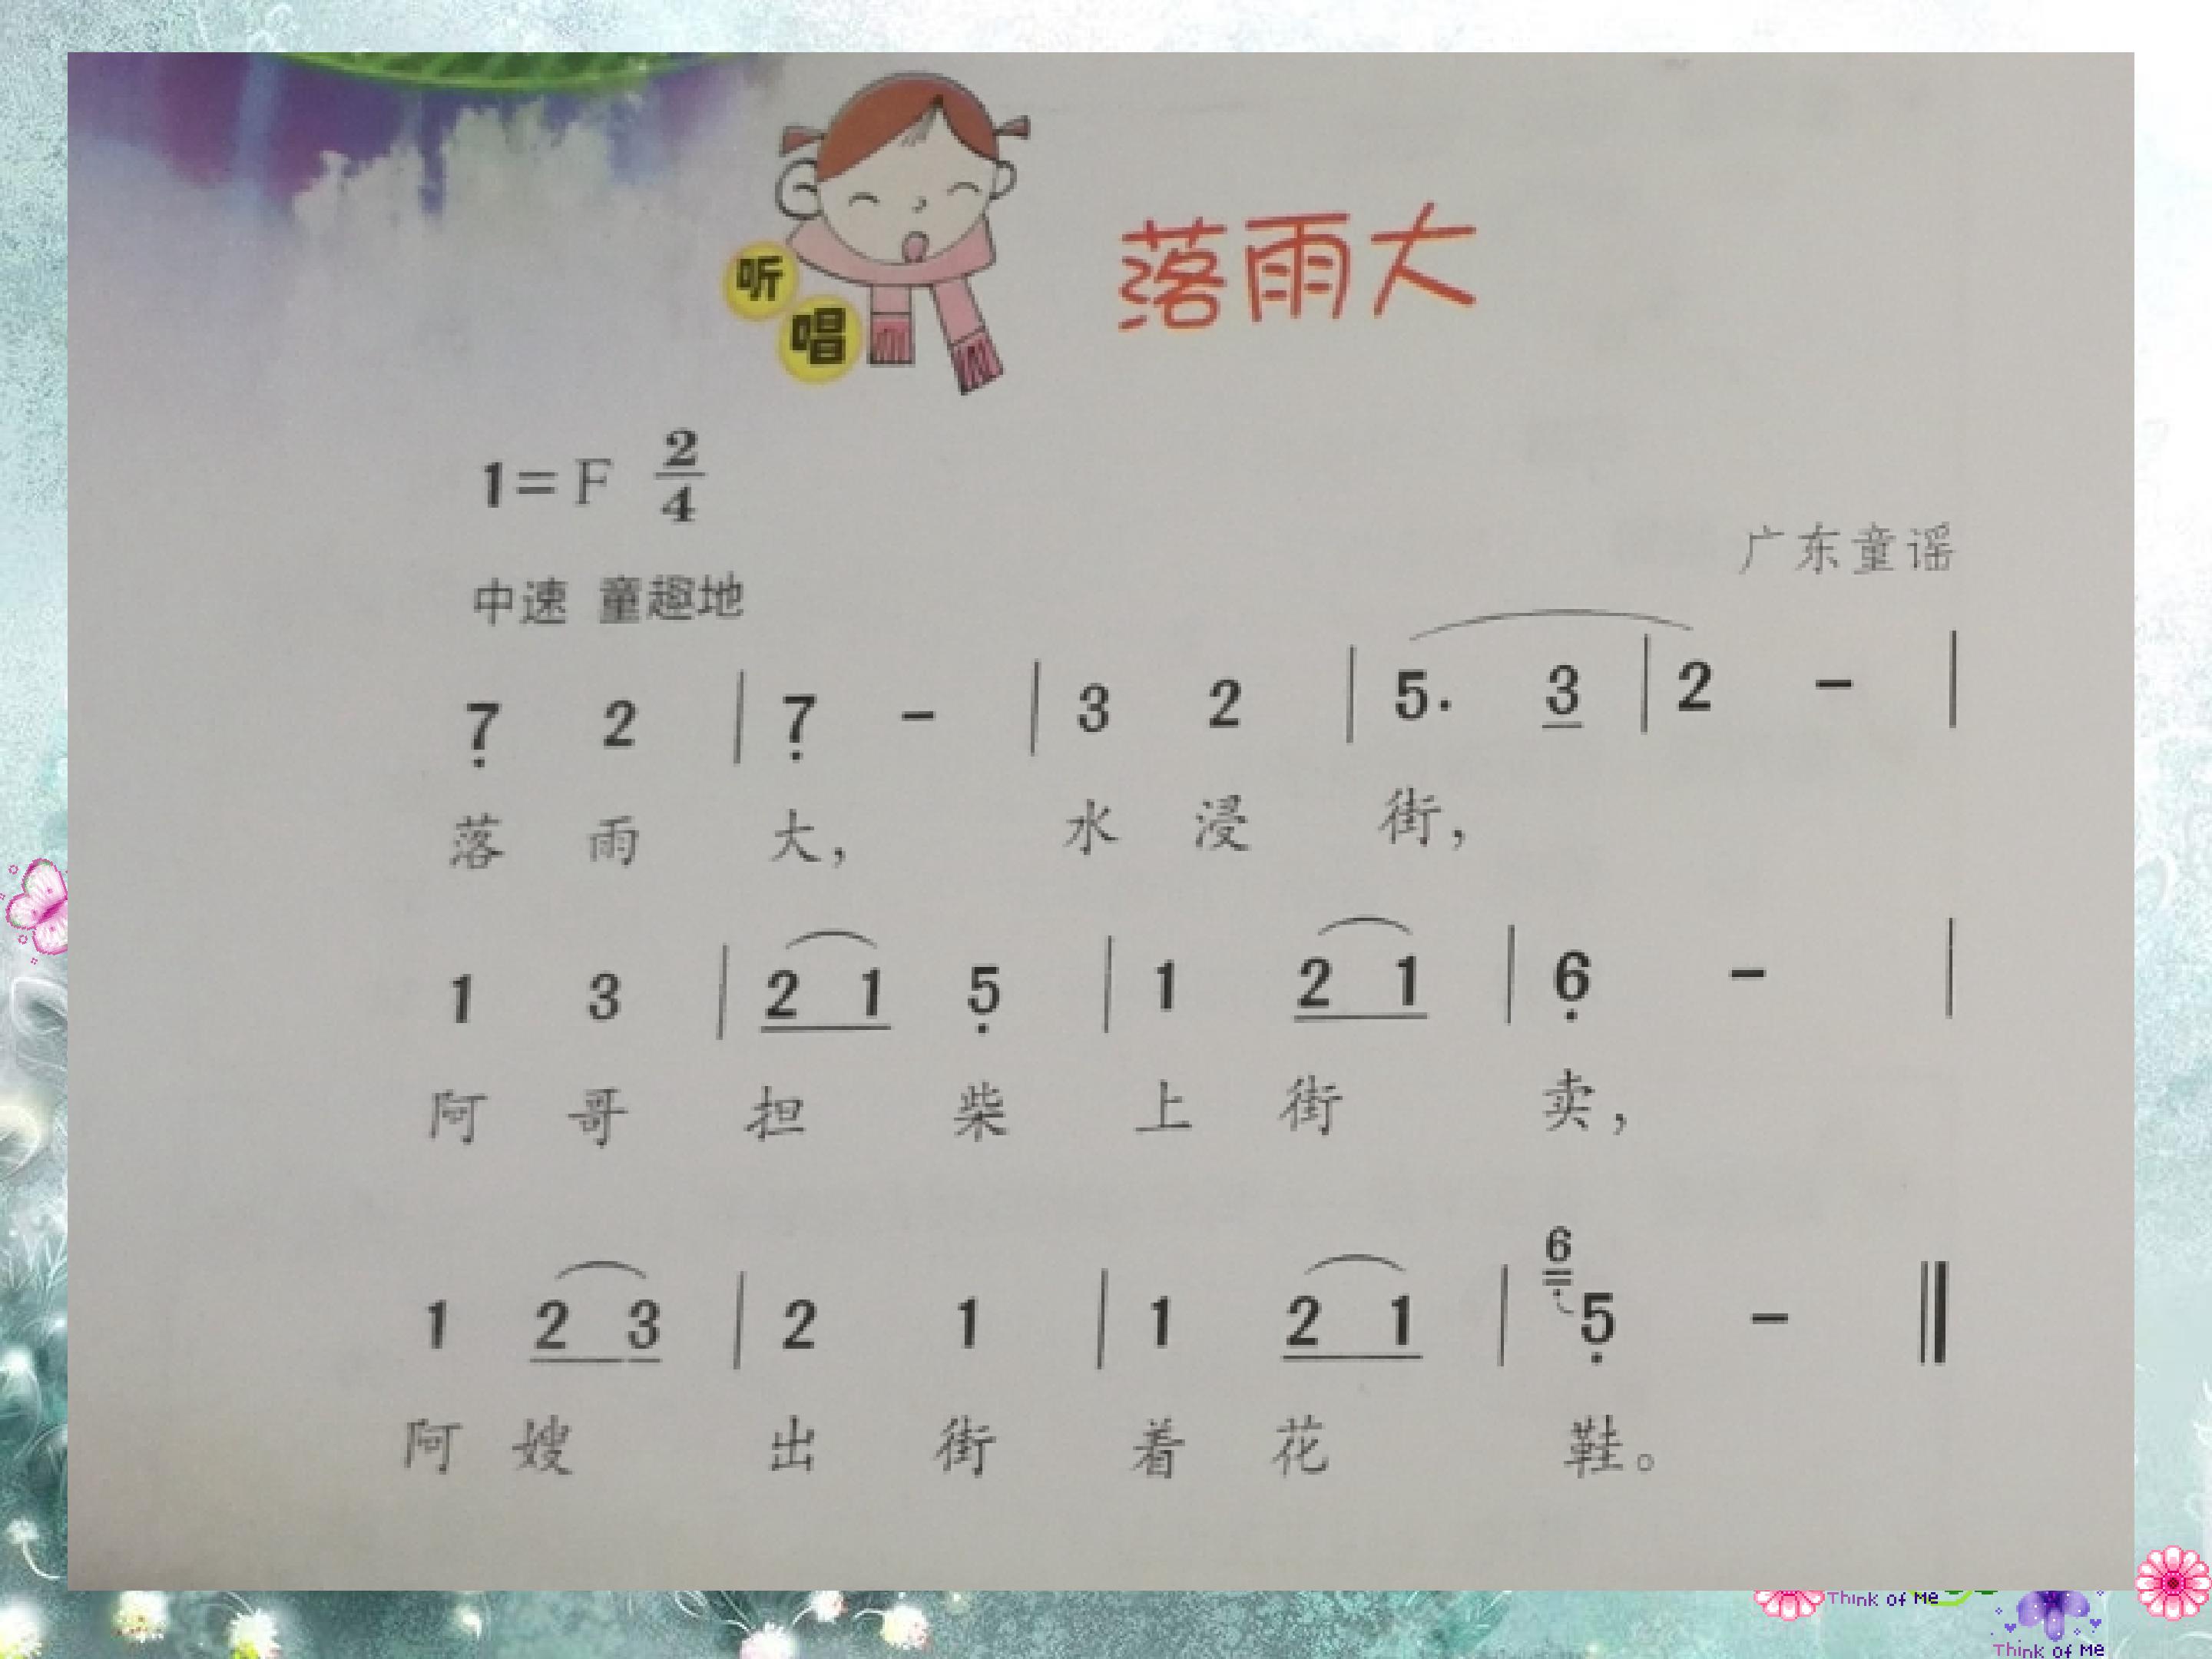 听唱
落雨大
1=F 2/4
广东童谣
中速 童趣地
7̣ 2 | 7̣ - | 3 2 | 5. 3̲ | 2 - |
落 雨 大， 水 浸 街，
1 3 | 2̲ 1̲ 5̣ | 1 2̲ 1̲ | 6̣ - |
阿 哥 担 柴 上 街 卖，
6
1 2̲ 3̲ | 2 1 | 1 2̲ 1̲ | 5̣ - ‖
阿 嫂 出 街 着 花 鞋。
Think of Me
Think of Me